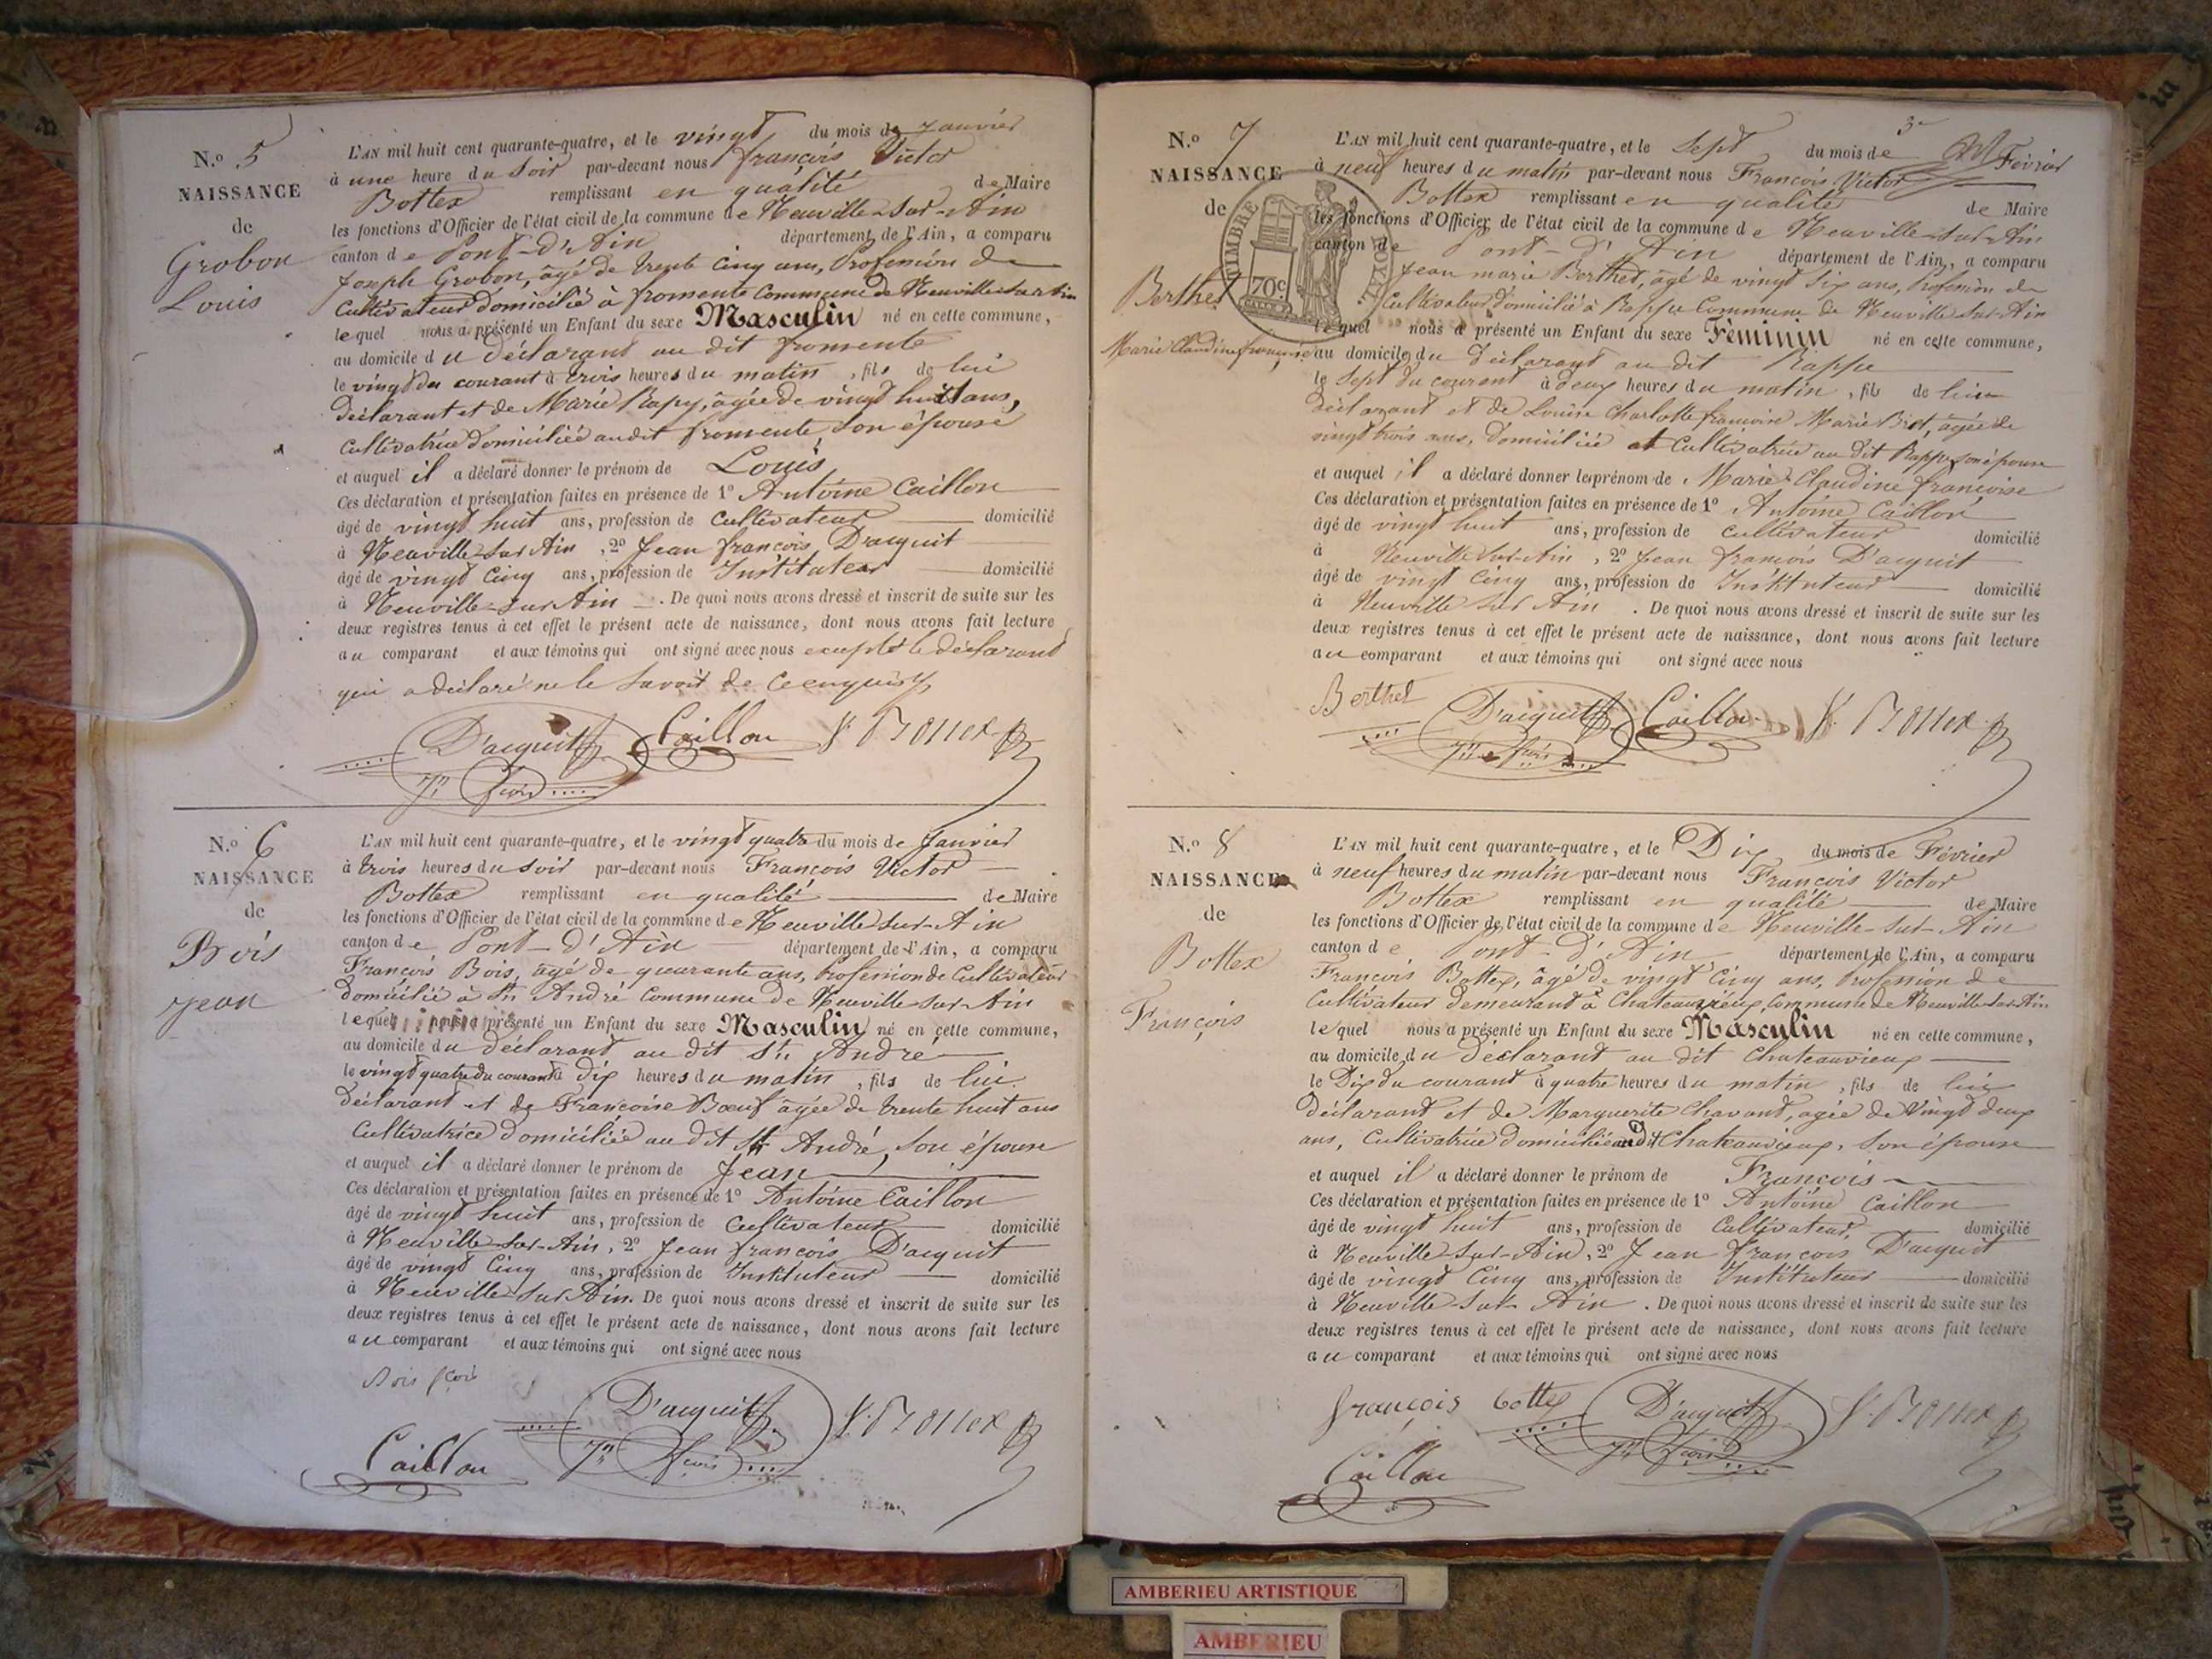 N.o 5
NAISSANCE
de
Grobon
Louis
L'AN mil huit cent quarante-quatre, et le vingt du mois de Janvier
à une heure du Soir par-devant nous françois Victor
Bottex remplissant en qualité de Maire
les fonctions d'Officier de l'état civil de la commune de Neuville-sur-Ain
canton de Pont-D'Ain département de l'Ain, a comparu
Joseph Grobon, âgé de trente cinq ans, Profession de
Cultivateur domicilié à fromente Commune de Neuville sur Ain
lequel nous a présenté un Enfant du sexe Masculin né en cette commune,
au domicile du déclarant au dit fromente
le vingt du courant à trois heures du matin, fils de lui
Déclarant et de Marie Rapy, âgée de vingt huit ans,
Cultivatrice domiciliée au dit fromente, son épouse
et auquel il a déclaré donner le prénom de Louis
Ces déclaration et présentation faites en présence de 1º Antoine Caillon
âgé de vingt huit ans, profession de Cultivateur domicilié
à Neuville sur Ain, 2º Jean françois D'acquit
âgé de vingt Cinq ans, profession de Instituteur domicilié
à Neuville-sur Ain. De quoi nous avons dressé et inscrit de suite sur les
deux registres tenus à cet effet le présent acte de naissance, dont nous avons fait lecture
au comparant et aux témoins qui ont signé avec nous excepté le déclarant
qui a déclaré ne le savoir de ce enquis
D'acquit Caillon V. Bottex
Jn fçois
N.o 6
NAISSANCE
de
Bois
Jean
L'AN mil huit cent quarante-quatre, et le vingt quatre du mois de Janvier
à trois heures du soir par-devant nous François Victor
Bottex remplissant en qualité de Maire
les fonctions d'Officier de l'état civil de la commune de Neuville sur-Ain
canton de Pont-D'Ain département de l'Ain, a comparu
François Bois, âgé de quarante ans, Profession de Cultivateur
domicilié à St André Commune de Neuville sur Ain
lequel nous a présenté un Enfant du sexe Masculin né en cette commune,
au domicile du déclarant au dit St André
le vingt quatre du courant à dix heures du matin, fils de lui
Déclarant et de Françoise Bœuf âgée de trente huit ans
Cultivatrice domiciliée au dit St André, son épouse
et auquel il a déclaré donner le prénom de Jean
Ces déclaration et présentation faites en présence de 1º Antoine Caillon
âgé de vingt huit ans, profession de Cultivateur domicilié
à Neuville-sur-Ain, 2º Jean françois D'acquit
âgé de vingt Cinq ans, profession de Instituteur domicilié
à Neuville sur Ain. De quoi nous avons dressé et inscrit de suite sur les
deux registres tenus à cet effet le présent acte de naissance, dont nous avons fait lecture
au comparant et aux témoins qui ont signé avec nous
Bois fçois D'acquit V. Bottex
Caillon Jn fçois
N.o 7
NAISSANCE
de
Berthet
Marie Claudine françoise
TIMBRE ROYAL
70c
L'AN mil huit cent quarante-quatre, et le Sept du mois de Février
à neuf heures du matin par-devant nous François Victor
Bottex remplissant en qualité de Maire
les fonctions d'Officier de l'état civil de la commune de Neuville-sur Ain
canton de Pont-D'Ain département de l'Ain, a comparu
Jean marie Berthet, âgé de vingt six ans, Profession de
Cultivateur domicilié à Rappe Commune de Neuville sur Ain
lequel nous a présenté un Enfant du sexe Féminin né en cette commune,
au domicile du déclarant au dit Rappe
le Sept du courant à deux heures du matin, fils de lui
déclarant et de Louise Charlotte françoise Marie Briet, âgée de
vingt trois ans, domiciliée et Cultivatrice au dit Rappe son épouse
et auquel il a déclaré donner le prénom de Marie Claudine françoise
Ces déclaration et présentation faites en présence de 1º Antoine Caillon
âgé de vingt huit ans, profession de cultivateur domicilié
à Neuville Sur-Ain, 2º Jean françois D'acquit
âgé de vingt Cinq ans, profession de Instituteur domicilié
à Neuville sur Ain. De quoi nous avons dressé et inscrit de suite sur les
deux registres tenus à cet effet le présent acte de naissance, dont nous avons fait lecture
au comparant et aux témoins qui ont signé avec nous
Berthet D'acquit Caillon V. Bottex
Jn fçois
N.o 8
NAISSANCE
de
Bottex
François
L'AN mil huit cent quarante-quatre, et le Dix du mois de Février
à neuf heures du matin par-devant nous François Victor
Bottex remplissant en qualité de Maire
les fonctions d'Officier de l'état civil de la commune de Neuville-sur-Ain
canton de Pont-D'Ain département de l'Ain, a comparu
François Bottex, âgé de vingt Cinq ans, Profession de
Cultivateur demeurant à Chateauvieux, Commune de Neuville sur Ain
lequel nous a présenté un Enfant du sexe Masculin né en cette commune,
au domicile du déclarant au dit Chateauvieux
le Dix du courant à quatre heures du matin, fils de lui
Déclarant et de Marguerite Chavant, agée de Vingt deux
ans, Cultivatrice domiciliée au dit Chateauvieux, son épouse
et auquel il a déclaré donner le prénom de François
Ces déclaration et présentation faites en présence de 1º Antoine Caillon
âgé de vingt huit ans, profession de Cultivateur domicilié
à Neuville-Sur-Ain, 2º Jean françois D'acquit
âgé de vingt Cinq ans, profession de Instituteur domicilié
à Neuville sur Ain. De quoi nous avons dressé et inscrit de suite sur les
deux registres tenus à cet effet le présent acte de naissance, dont nous avons fait lecture
au comparant et aux témoins qui ont signé avec nous
françois bottex D'acquit V. Bottex
Caillon Jn fçois
AMBERIEU ARTISTIQUE
AMBERIEU